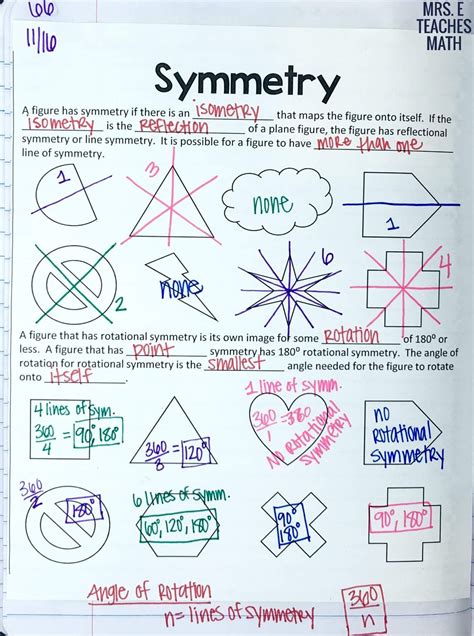 66
11/16
MRS. E
TEACHES
MATH
Symmetry
A figure has symmetry if there is an isometry that maps the figure onto itself. If the
isometry is the reflection of a plane figure, the figure has reflectional
symmetry or line symmetry. It is possible for a figure to have more than one
line of symmetry.
1
3
none
1
2
none
6
4
A figure that has rotational symmetry is its own image for some rotation of 180° or
less. A figure that has point symmetry has 180° rotational symmetry. The angle of
rotation for rotational symmetry is the smallest angle needed for the figure to rotate
onto itself.
4 lines of sym.
360/4 = 90°, 180°
360/3 = 120°
1 line of symm.
360/1 = 360
NO Rotational
symmetry
no
Rotational
symmetry
360/2
180°
6 lines of symm.
60°, 120°, 180°
90°
180°
90°, 180°
Angle of Rotation
n = lines of symmetry
360/n